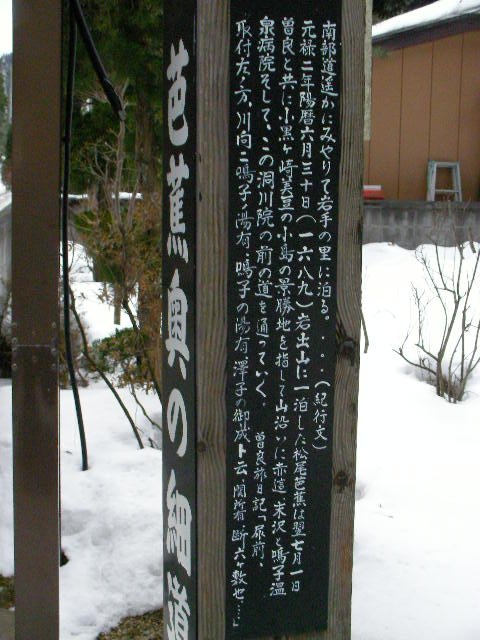 南部道遥かにみやりて岩手の里に泊る。・・・(紀行文)
元禄二年陽暦六月三十日(一六八九)岩出山に一泊した松尾芭蕉は翌七月一日
曽良と共に小黒ヶ崎美豆の小島の景勝地を指して山沿いに赤這、末沢と鳴子温
泉病院そして、この洞川院の前の道を通っていく。 曽良旅日記「尿前、
取付左ノ方、川向ニ鳴子ノ湯有、鳴子の湯有、澤子の御成ト云、関所有、断六ヶ敷也…」
芭蕉奥の細道